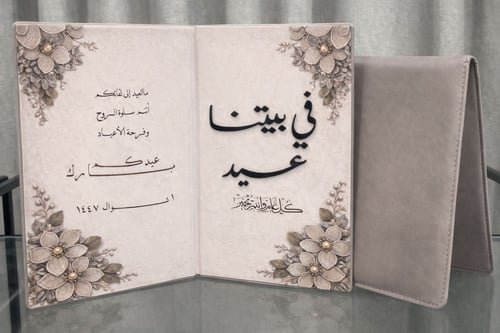 في بيتنا
عيد
كل عام وأنتم بخير
مالعيد إلى لقائكم
أنتم سلوة الروح
وفرحة الأعياد
عيدكم
مبارك
١ شوال ١٤٤٧